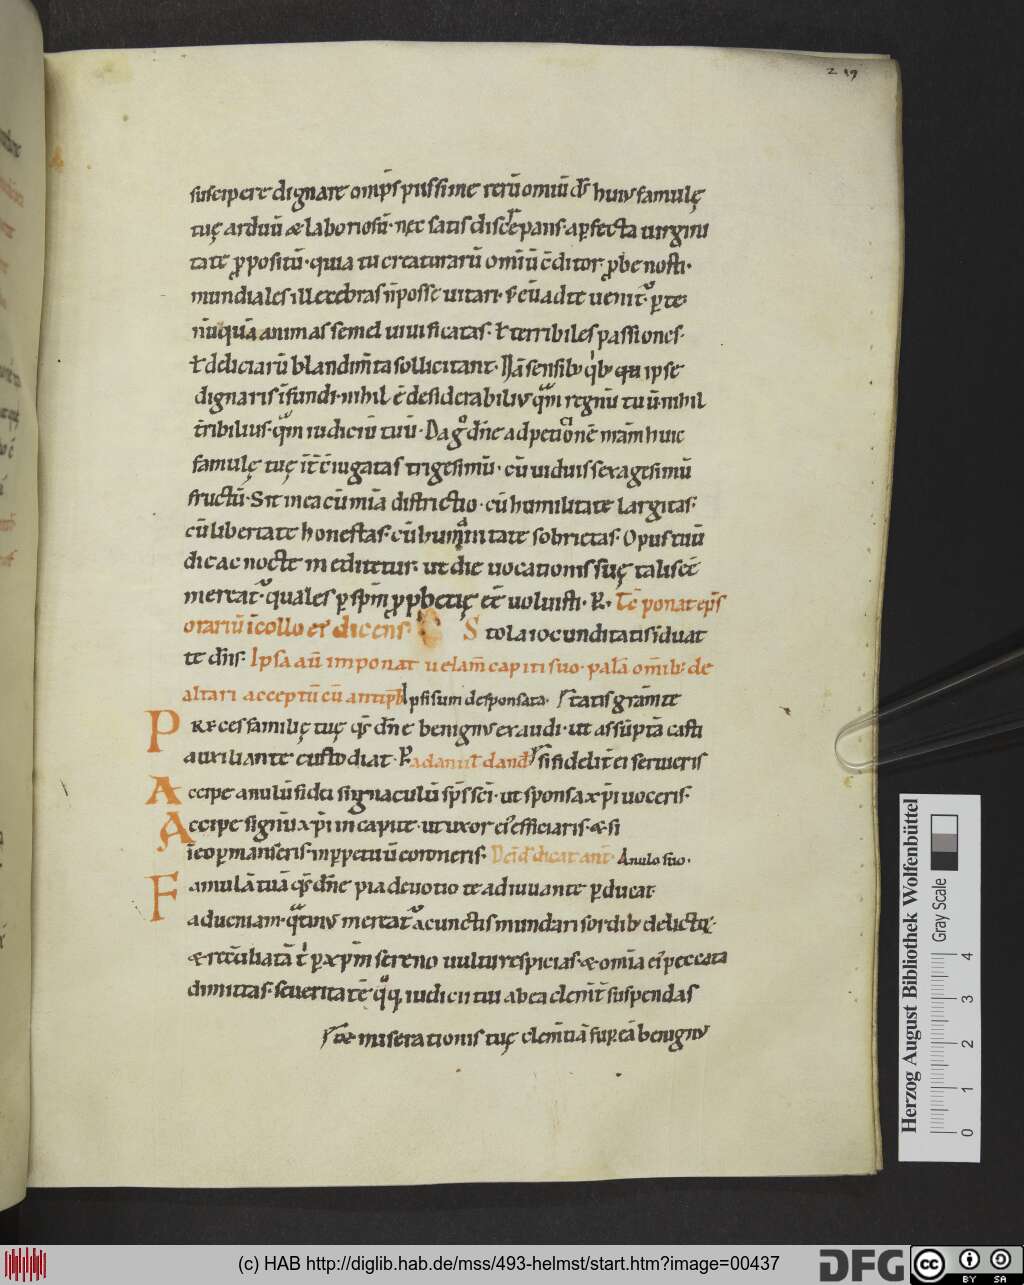 219
suscipere dignare omp̄s piissime rerū omiū ds̄ huiꝰ famulę
tuę arduū & laboriosū· nęc satis discrepans· a pfecta uirgini
tate ꝓpositū· quia tu creaturarū omiū c̄ditor ꝓbe nosti·
mundiales illecebras n̄ posse uitari· s; cū ad te uenit᷑ ꝑ te
nūquā animas semel uiuificatas· ł terribiles passiones·
ł deliciarū blandim̄ta sollicitant· Nā sensibꝰ qͥbꝰ qui ipse
dignaris īfundi· nihil ē desiderabiliꝰ qͣm regnū tuū nihil
tr̄ribilius· qͣm iudiciū tuū· Da gͦ dn̄e ad petitionē nr̄am huic
famulę tuę int̄ c̄iugatas trigesimū· cū uiduis sexagesimū
fructū· Sit in ea cū mia districtio· cū humilitate largitas·
cū libertate honestas· cū humanitate sobrietas· Opus tuū
die ac nocte meditetur· ut die uocationis suę talis eē
mereat᷑· quales ꝑ spm̄ ꝓphetię eē uoluisti· R· Tē ponat eps̄
orariū ī collo ei dicens· Stola iocunditatis īduat
te dn̄s· Ipsa aū imponat uelam̄ capiti suo· palā omībꝰ de
altari acceptū cū antiph̄ Ipsi sum desponsata·
Preces familię tuę qs̄ dn̄e benignꝰ exaudi· ut assūpta casti
auxiliante custodiat· Si fidelit̄ ei seruieris
Accipe anulū fidei signaculū sp̄s sc̄i· ut sponsa xp̄i uoceris·
Accipe signū xp̄i in capite· ut uxor eiꝰ efficiaris· & si
ī eo ꝑmanseris· in ꝑpetuū coroneris· Anulo suo·
Famulā tuā qs̄ dn̄e pia deuotio te adiuuante ꝑducat
ad ueniam· qͣtinꝰ mereat᷑ a cunctis mundari sordibꝰ delictoꝝ·
& rec̄ciliatā t̄ ꝑ xpm̄ sereno uultu respicias· & omia eiꝰ peccata
dimittas· seueritatē qͦꝙ iudicii tui ab ea clemt̄ suspendas
& miserationis tuę clem̄tiā suꝑ eā benignꝰ
Herzog August Bibliothek Wolfenbüttel
Gray Scale
0 1 2 3 4
(c) HAB http://diglib.hab.de/mss/493-helmst/start.htm?image=00437
DFG cc BY SA